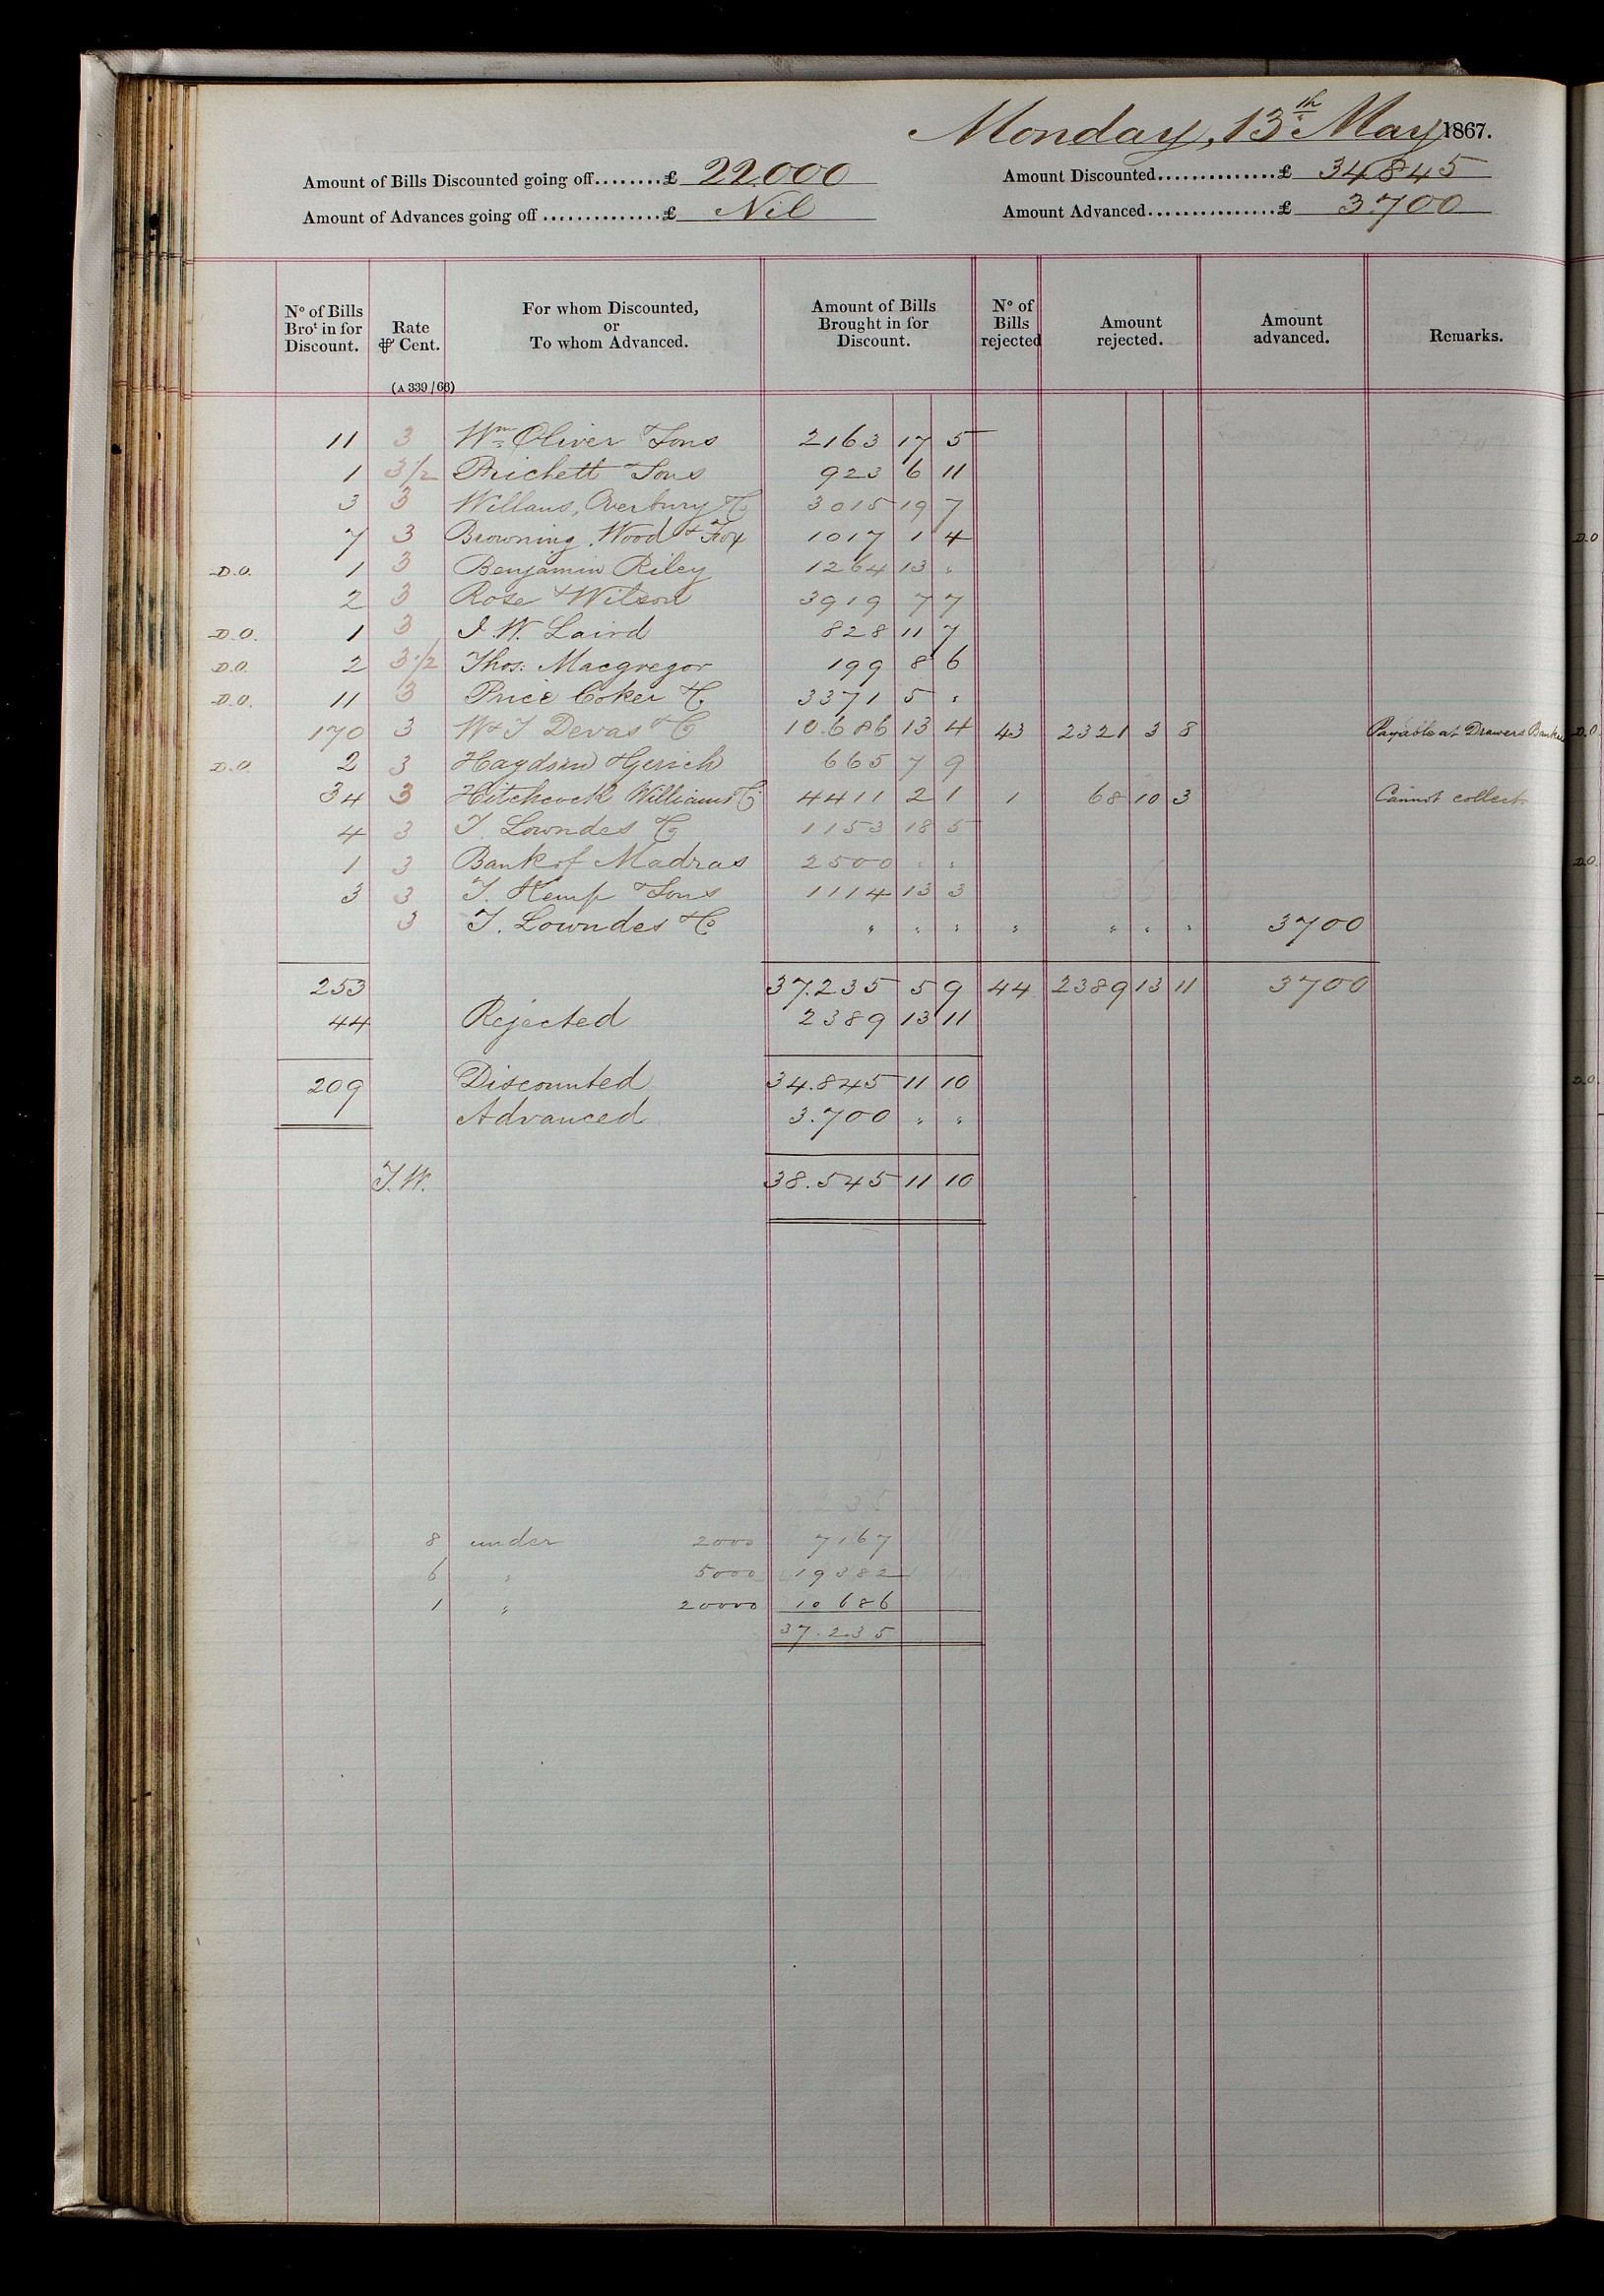 Monday, 13th May 1867.
Amount of Bills Discounted going off........£ 22.000 Amount Discounted...............£ 34845
Amount of Advances going off ..............£ Nil Amount Advanced................£ 3700
No of Bills Brot in for Discount. Rate ⅌ Cent. For whom Discounted, or To whom Advanced. Amount of Bills Brought in for Discount. No of Bills rejected Amount rejected. Amount advanced. Remarks.
(A 339/66)
11 3 Wm Oliver & Sons 2163 17 5
1 3½ Prichett & Sons 923 6 11
3 3 Willans, Overbury & Co 3015 19 7
7 3 Browning Wood & Fox 1017 1 4
D.O. 1 3 Benjamin Riley 1264 13 "
2 3 Rose & Wilson 3919 7 7
D.O. 1 3 J.W. Laird 828 11 7
D.O. 2 3½ Thos: Macgregor 199 8 6
D.O. 11 3 Price Coker & Co 3371 5 "
170 3 W & T Devas & Co 10.686 13 4 43 2321 3 8 Payable at Drawers Bankers
D.O. 2 3 665 7 9
34 3 Hitchcock Williams & Co 4411 2 1 1 68 10 3 Cannot collect
4 3 T. Lowndes & Co 1153 18 5
1 3 Bank of Madras 2500 " "
3 3 T. Kemp & Sons 1114 13 3
3 T. Lowndes & Co " " " " " " " 3700
253 37.235 5 9 44 2389 13 11 3700
44 Rejected 2389 13 11
209 Discounted 34.845 11 10
Advanced 3.700 " "
T.W. 38.545 11 10
8 under 2000 7167
6 " 5000 19382
1 " 20000 10686
37.235